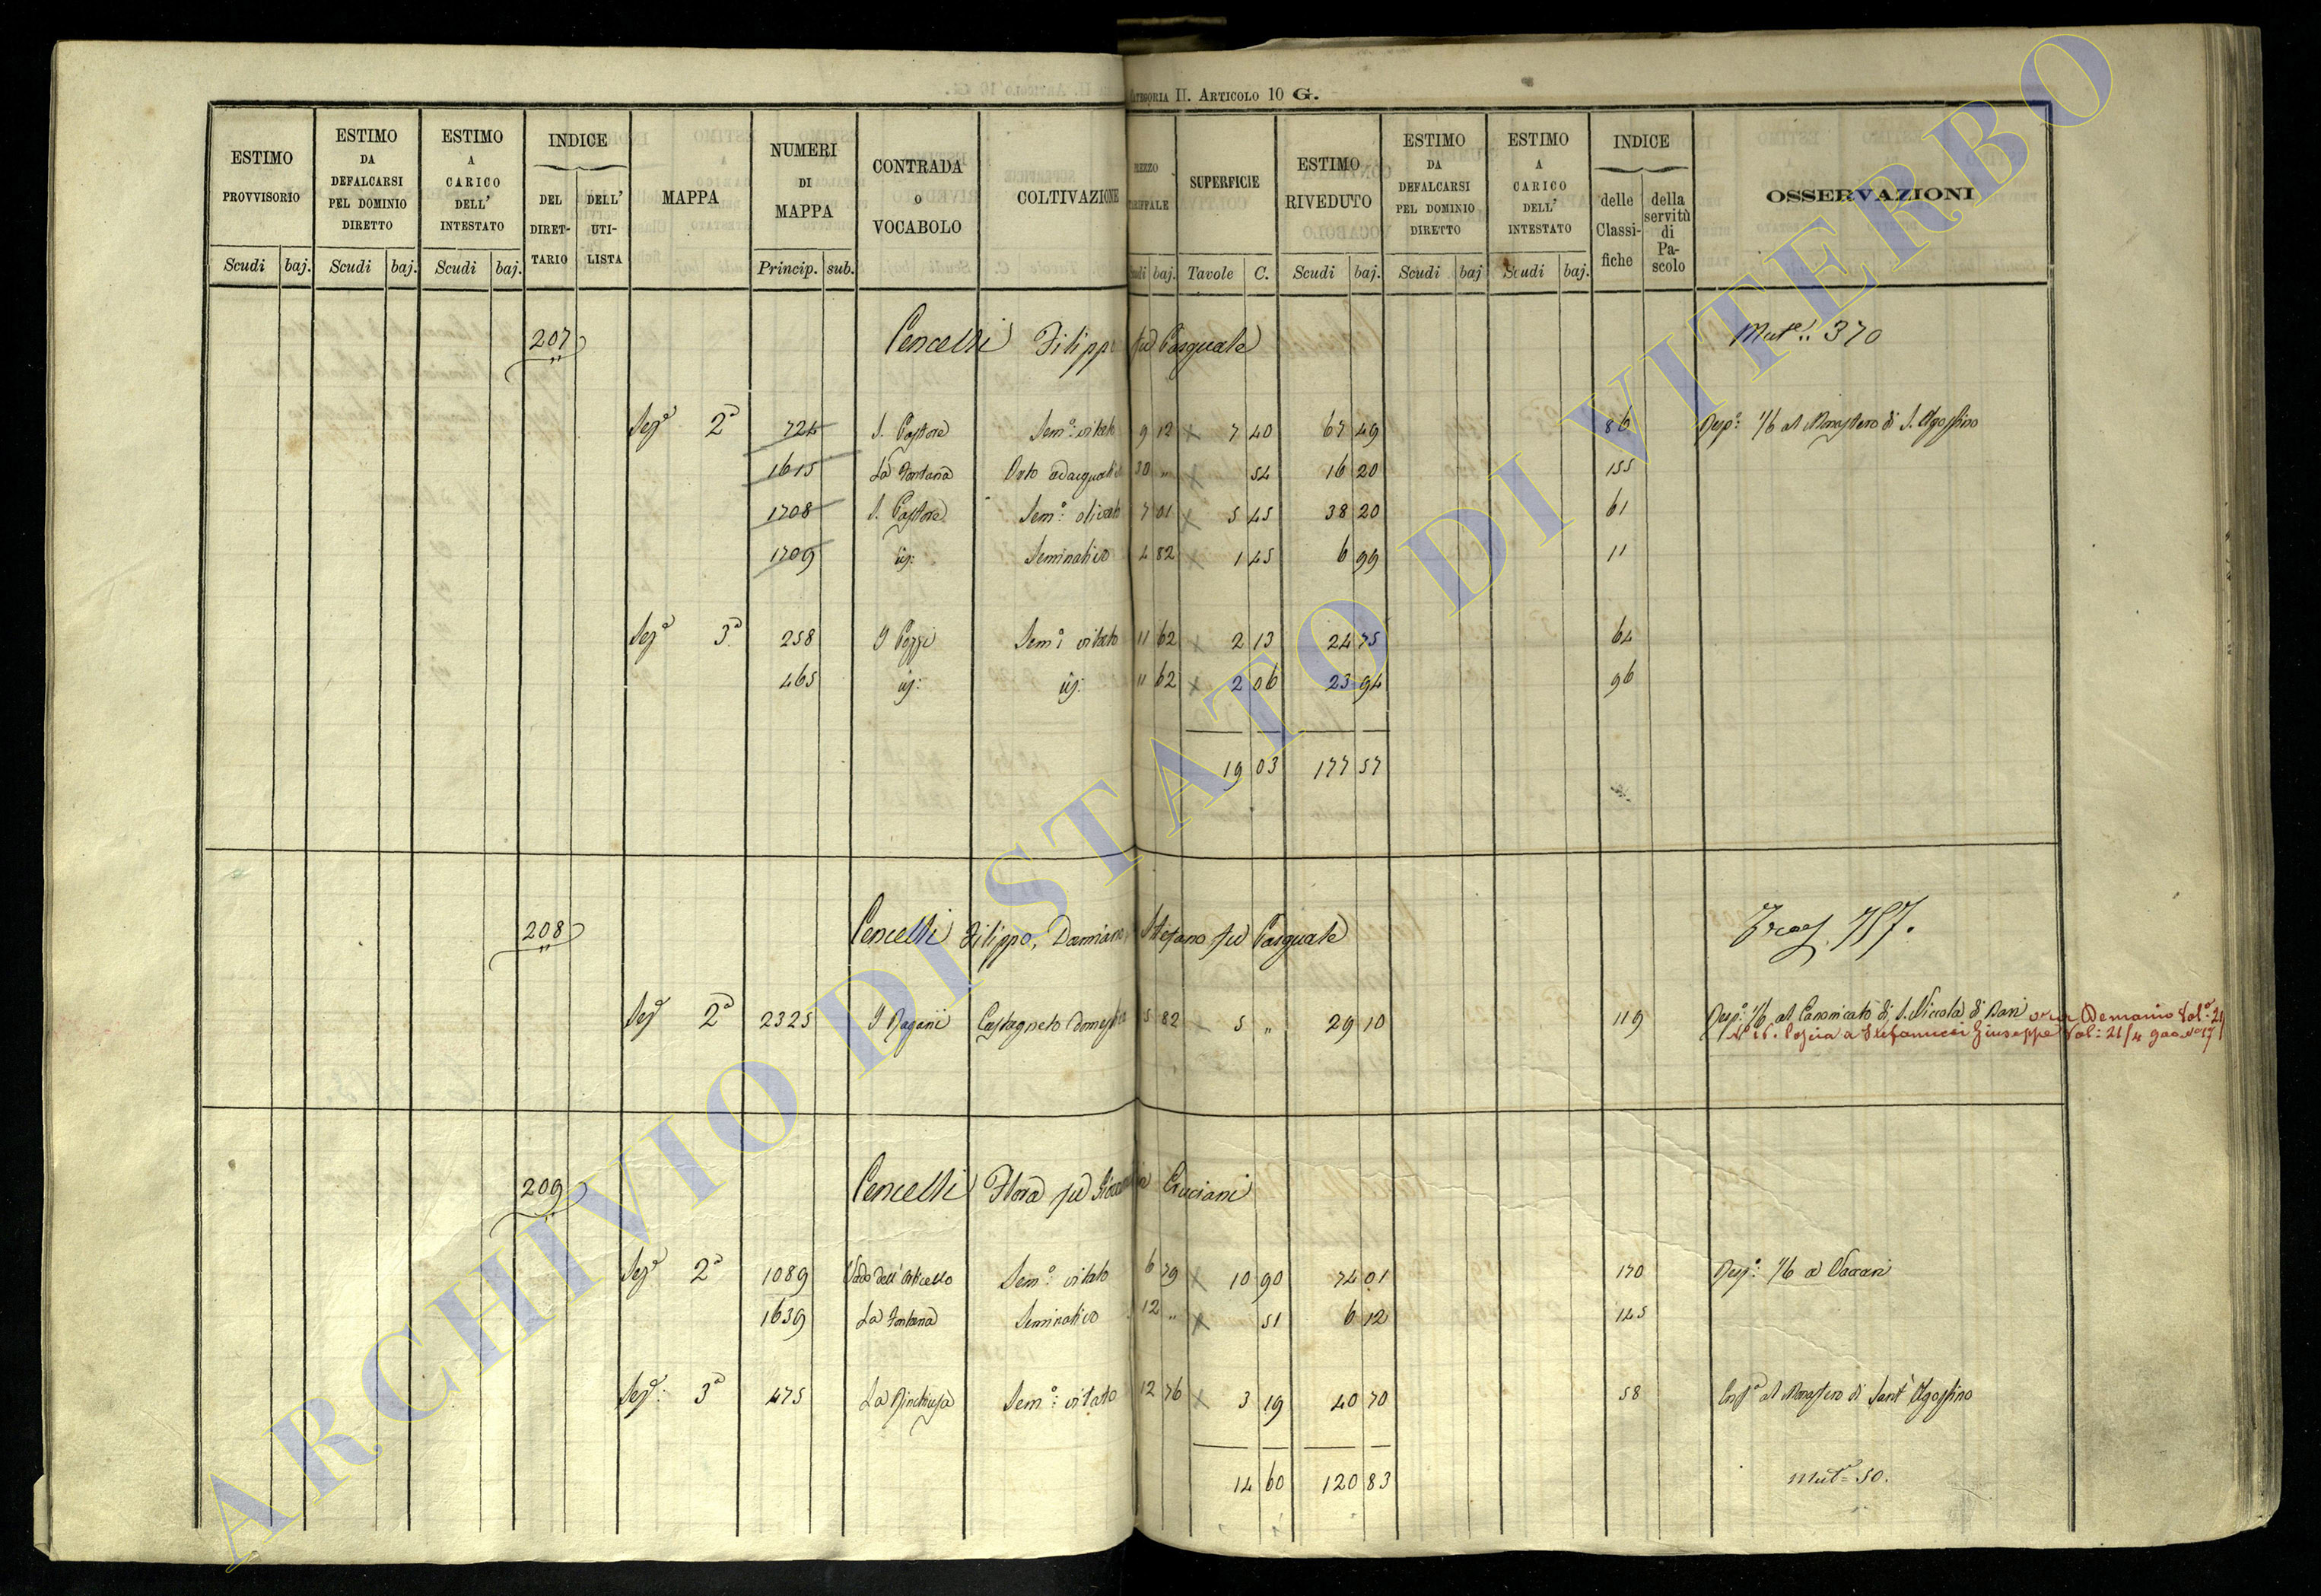 CATEGORIA II. ARTICOLO 10 G.
ESTIMO PROVVISORIO Scudi baj.
ESTIMO DA DEFALCARSI PEL DOMINIO DIRETTO Scudi baj.
ESTIMO A CARICO DELL' INTESTATO Scudi baj.
INDICE DEL DIRET-TARIO DELL' UTI-LISTA
MAPPA
NUMERI DI MAPPA Princip. sub.
CONTRADA O VOCABOLO
COLTIVAZIONE
REZZO baj.
SUPERFICIE Tavole C.
ESTIMO RIVEDUTO Scudi baj.
ESTIMO DA DEFALCARSI PEL DOMINIO DIRETTO Scudi baj
ESTIMO A CARICO DELL' INTESTATO Scudi baj.
INDICE delle Classi-fiche della servitù di Pa-scolo
OSSERVAZIONI
207 Cencelli Filippo fu Pasquale Mut.e: 370
Sez.e 2a 724 S. Pastore Sem.o: vitato 9 12 7 40 67 49 86 Resp.: 1/6 al Monastero di S. Agostino
1615 La Fontana Orto adacquat 30 " 54 16 20 155
1708 S. Pastore Sem.o: olivato 7 01 5 45 38 20 61
1709 id: Seminativo 4 82 1 45 6 99 11
Sez.e 3a 258 I Pozzi Sem.o: vitato 11 62 2 13 24 75 64
465 id: id: 11 62 2 06 23 94 96
19 03 177 57
208 Cencelli Filippo, Damiano, Stefano fu Pasquale
Sez.e 2a 2325 I Castagneto Domest 5 82 5 " 29 10 119 Resp.: 1/6 al Canonicato di S. Niccola di Bari ora Demanio Vol.e 21
a Stefanucci Giuseppe Vol: 21/4
209 Cencelli Flora fu Cruciani
Sez.e 2a 1089 dell' Sem.o: vitato 6 79 10 90 74 01 170 Resp.: 1/6 a Vaccari
1639 La Fontana Seminativo 12 " 51 6 12 145
Sez.e: 3a 475 La Rinchiusa Sem.o: vitato 12 76 3 19 40 70 58 al Monastero di Sant' Agostino
14 60 120 83 Mut.e 50.
ARCHIVIO DI STATO DI VITERBO